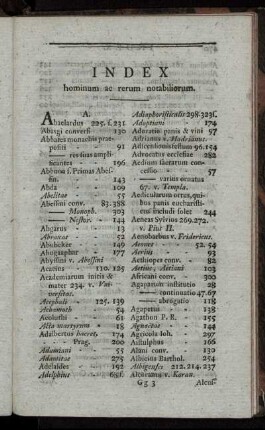 INDEX
hominum ac rerum notabiliorum.
A.
Abaelardus 225. f. 231
Abasgi conversi 130
Abbates monachis praepositi 91
—— reditus amplificantes 196
Abbuna f. Primas Abess. 143
Abda 109
Abelitae 55
Abessini conv. 83. 388
—— Monoph. 303
—— Nestor. 144
Abgarus 13
Abraxas 52
Abubeker 149
Abugiaphar 177
Abyssini v. Abessini
Acacius 130. 125
Academiarum initia & mater 234. v. Universitas.
Acephali 125. 139
Achamoth 54
Acoluthi 61
Acta martyrum 18
Adalbertus haeret. 174
—— Prag. 200
Adamiani 55
Adamitae 275
Adelaides 192
Adelphius 69
Adiaphoristicalis 298. 323
Adoptiani 174
Adoratio panis & vini 97
Adrianus v. Hadrianus.
Adscendens festum 96. 154
Advocatus ecclesiae 282
Aedium sacrarum consecratio 97
—— varius ornatus 67. v. Templa.
Aedicularum ortus, quibus panis eucharisticus includi solet 244
Aeneas Sylvius 269. 272. v. Pius II.
Aenobarbus v. Fridericus.
Aeones 52. 54
Aerius 93
Aethiopes conv. 82
Aetius, Aetiani 103
Africani conv. 300
Agaparum institutio 28
—— continuatio 47. 67
—— abrogatio 118
Agapetus 138
Agathon P. R. 155
Agnoetae 144
Agricola Joh. 297
Aistulphus 166
Alani conv. 130
Albicius Barthol. 254
Albigenses 212. 214. 237
Alcoranus v. Koran.
Gg 3
Alcui-